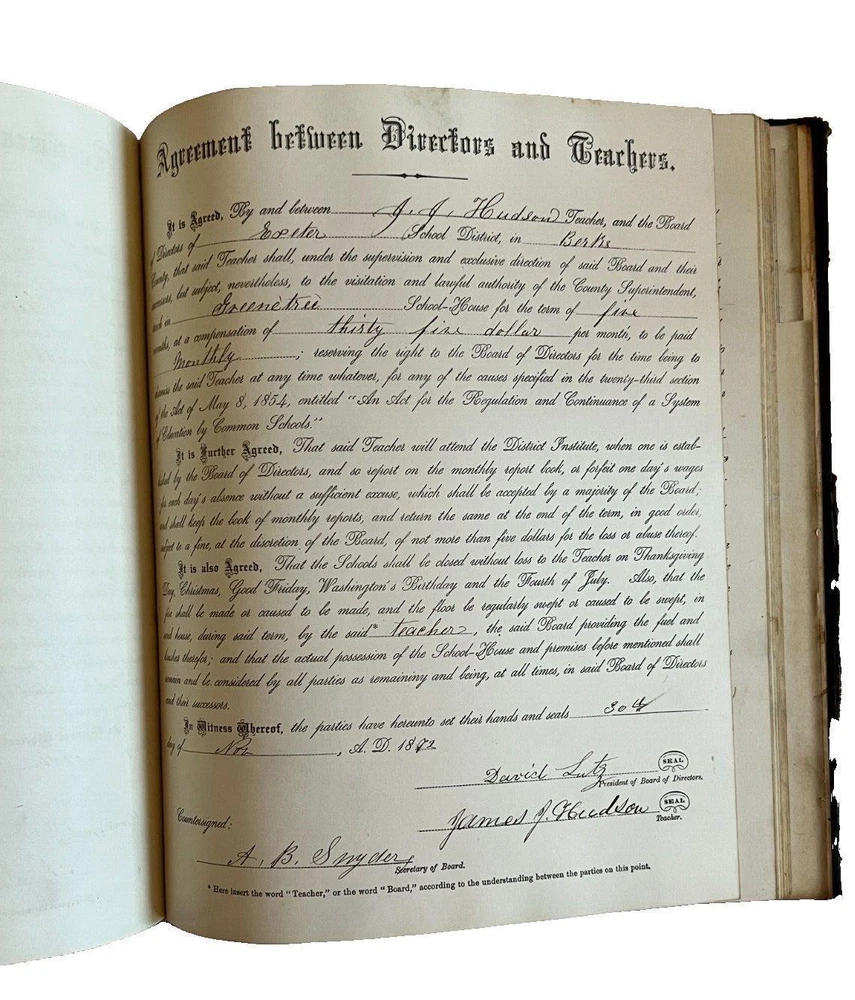 Agreement between Directors and Teachers.
It is Agreed, By and between J. J. Hudson Teacher, and the Board
of Directors of Exeter School District, in Berks
County, that said Teacher shall, under the supervision and exclusive direction of said Board and their
but subject, nevertheless, to the visitation and lawful authority of the County Superintendent,
in Greenetree School-House for the term of five
at a compensation of thirty five dollar per month, to be paid
Monthly ; reserving the right to the Board of Directors for the time being to
the said Teacher at any time whatever, for any of the causes specified in the twenty-third section
the Act of May 8, 1854, entitled "An Act for the Regulation and Continuance of a System
Education by Common Schools."
It is Further Agreed, That said Teacher will attend the District Institute, when one is estab-
by the Board of Directors, and so report on the monthly report book, or forfeit one day's wages
each day's absence without a sufficient excuse, which shall be accepted by a majority of the Board;
shall keep the book of monthly reports, and return the same at the end of the term, in good order,
to a fine, at the discretion of the Board, of not more than five dollars for the loss or abuse thereof.
It is also Agreed, That the Schools shall be closed without loss to the Teacher on Thanksgiving
Day, Christmas, Good Friday, Washington's Birthday and the Fourth of July. Also, that the
shall be made or caused to be made, and the floor be regularly swept or caused to be swept, in
house, during said term, by the said* teacher , the said Board providing the fuel and
therefor; and that the actual possession of the School-House and premises before mentioned shall
and be considered by all parties as remaining and being, at all times, in said Board of Directors
and their successors.
In Witness Whereof, the parties have hereunto set their hands and seals 30th
day of Nov , A. D. 1872
David Lutz SEAL
President of Board of Directors.
James J. Hudson SEAL
Teacher.
Countersigned:
A. B. Snyder
Secretary of Board.
* Here insert the word "Teacher," or the word "Board," according to the understanding between the parties on this point.